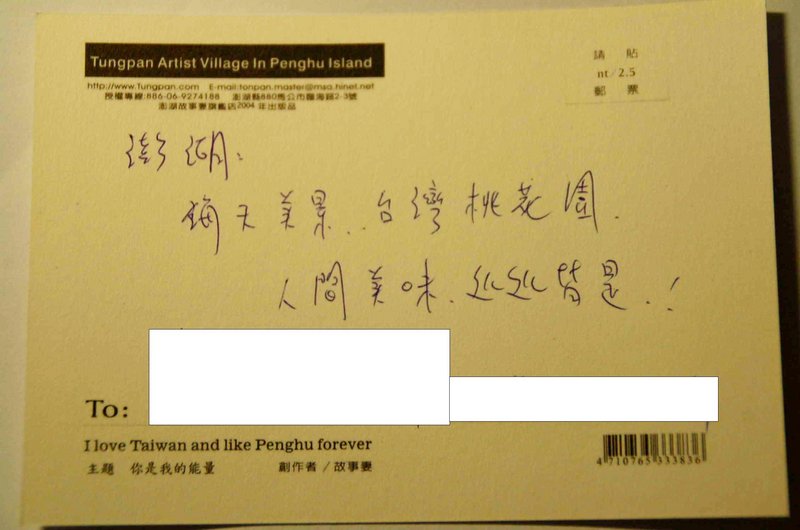 Tungpan Artist Village In Penghu Island
http://www.Tungpan.com E-mail:tonpan.master@msa.hinet.net
授權專線:886-06-9274188 澎湖縣880馬公市臨海路2-3號
澎湖故事妻旗艦店2004 年出版品
請 貼
nt/2.5
郵 票
澎湖:
海天美景..台灣桃花園.
人間美味.処処皆是.!
To:
I love Taiwan and like Penghu forever
主題 你是我的能量
創作者 / 故事妻
4 710765 333836